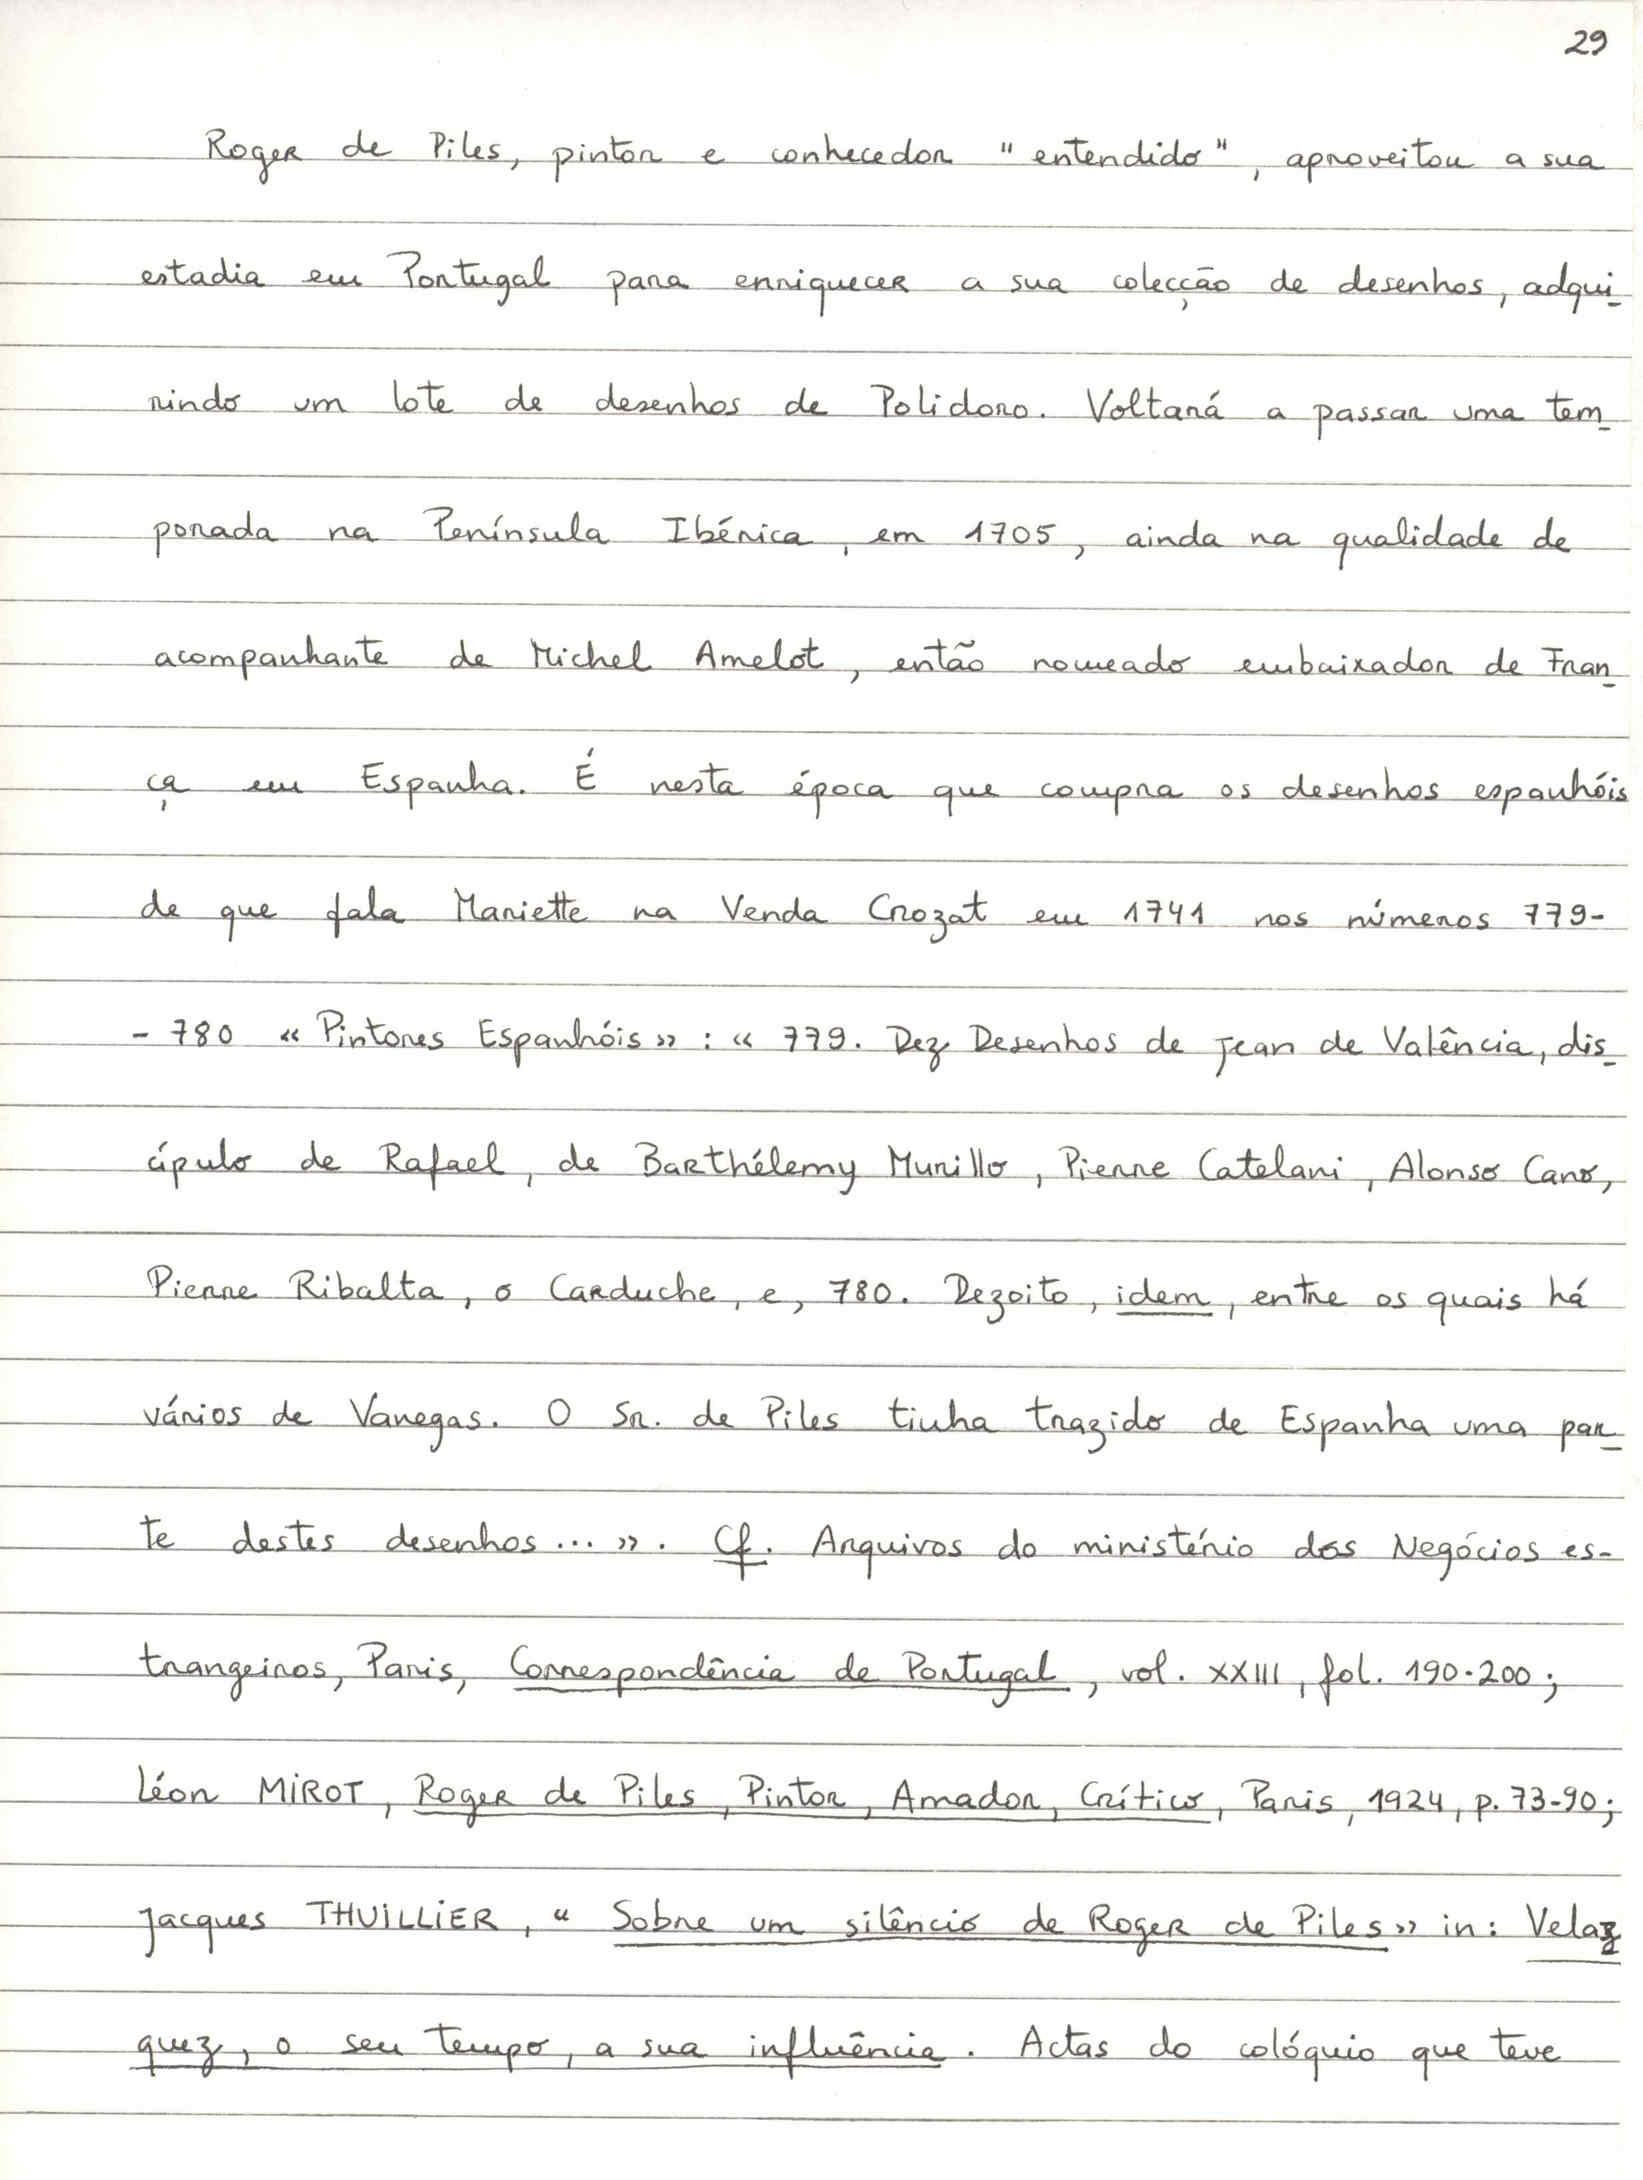 29
Roger de Piles, pintor e conhecedor "entendido", aproveitou a sua
estadia em Portugal para enriquecer a sua colecção de desenhos, adqui-
rindo um lote de desenhos de Polidoro. Voltará a passar uma tem-
porada na Península Ibérica, em 1705, ainda na qualidade de
acompanhante de Michel Amelot, então nomeado embaixador de Fran-
ça em Espanha. É nesta época que compra os desenhos espanhóis
de que fala Mariette na Venda Crozat em 1741 nos números 779-
- 780 « Pintores Espanhóis » : « 779. Dez Desenhos de Jean de Valência, dis-
cípulo de Rafael, de Barthélemy Murillo, Pierre Catelani, Alonso Cano,
Pierre Ribalta, o Carduche, e, 780. Dezoito, idem, entre os quais há
vários de Vanegas. O Sr. de Piles tinha trazido de Espanha uma par-
te destes desenhos... ». Cf. Arquivos do ministério dos Negócios es-
trangeiros, Paris, Correspondência de Portugal, vol. XXIII, fol. 190-200;
Léon MIROT, Roger de Piles, Pintor, Amador, Crítico, Paris, 1924, p. 73-90;
Jacques THUILLIER, « Sobre um silêncio de Roger de Piles » in: Velaz-
quez, o seu tempo, a sua influência. Actas do colóquio que teve